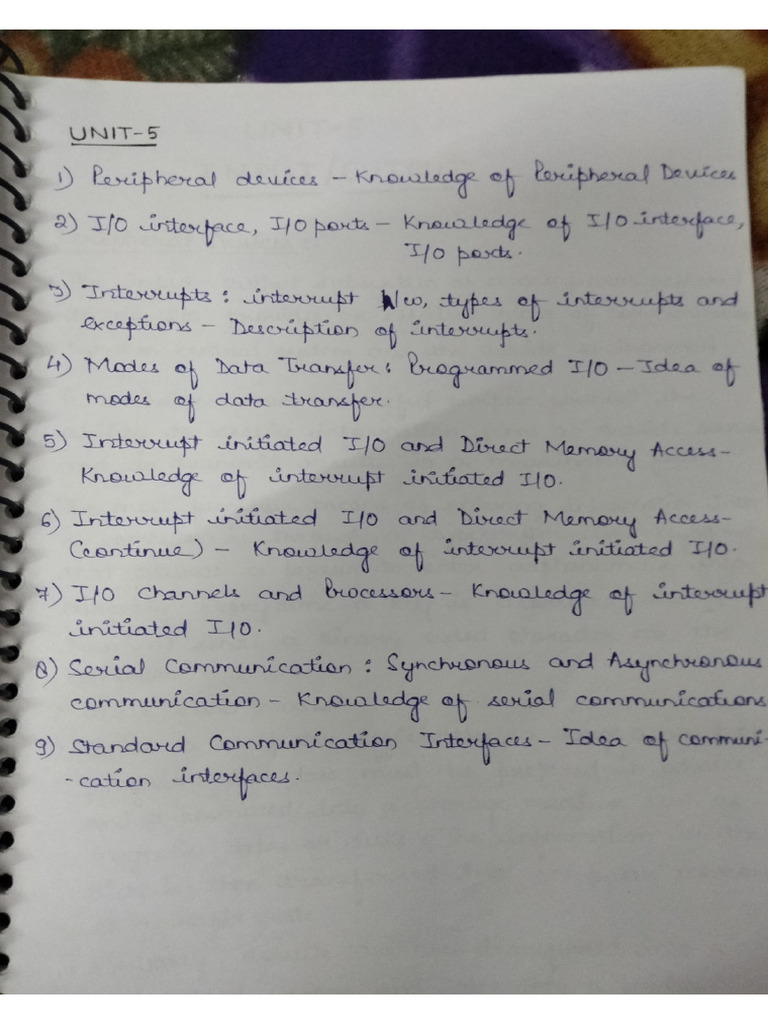 UNIT-5
1) Peripheral devices - Knowledge of Peripheral Devices
2) I/O interface, I/O ports - Knowledge of I/O interface,
I/O ports.
3) Interrupts: interrupt h/w, types of interrupts and
exceptions - Description of interrupts.
4) Modes of Data Transfer: Programmed I/O - Idea of
modes of data transfer.
5) Interrupt initiated I/O and Direct Memory Access-
Knowledge of interrupt initiated I/O.
6) Interrupt initiated I/O and Direct Memory Access-
(continue) - Knowledge of interrupt initiated I/O.
7) I/O Channels and Processors- Knowledge of interrupt
initiated I/O.
8) Serial Communication: Synchronous and Asynchronous
communication - Knowledge of serial communications
9) Standard Communication Interfaces- Idea of communi-
-cation interfaces.